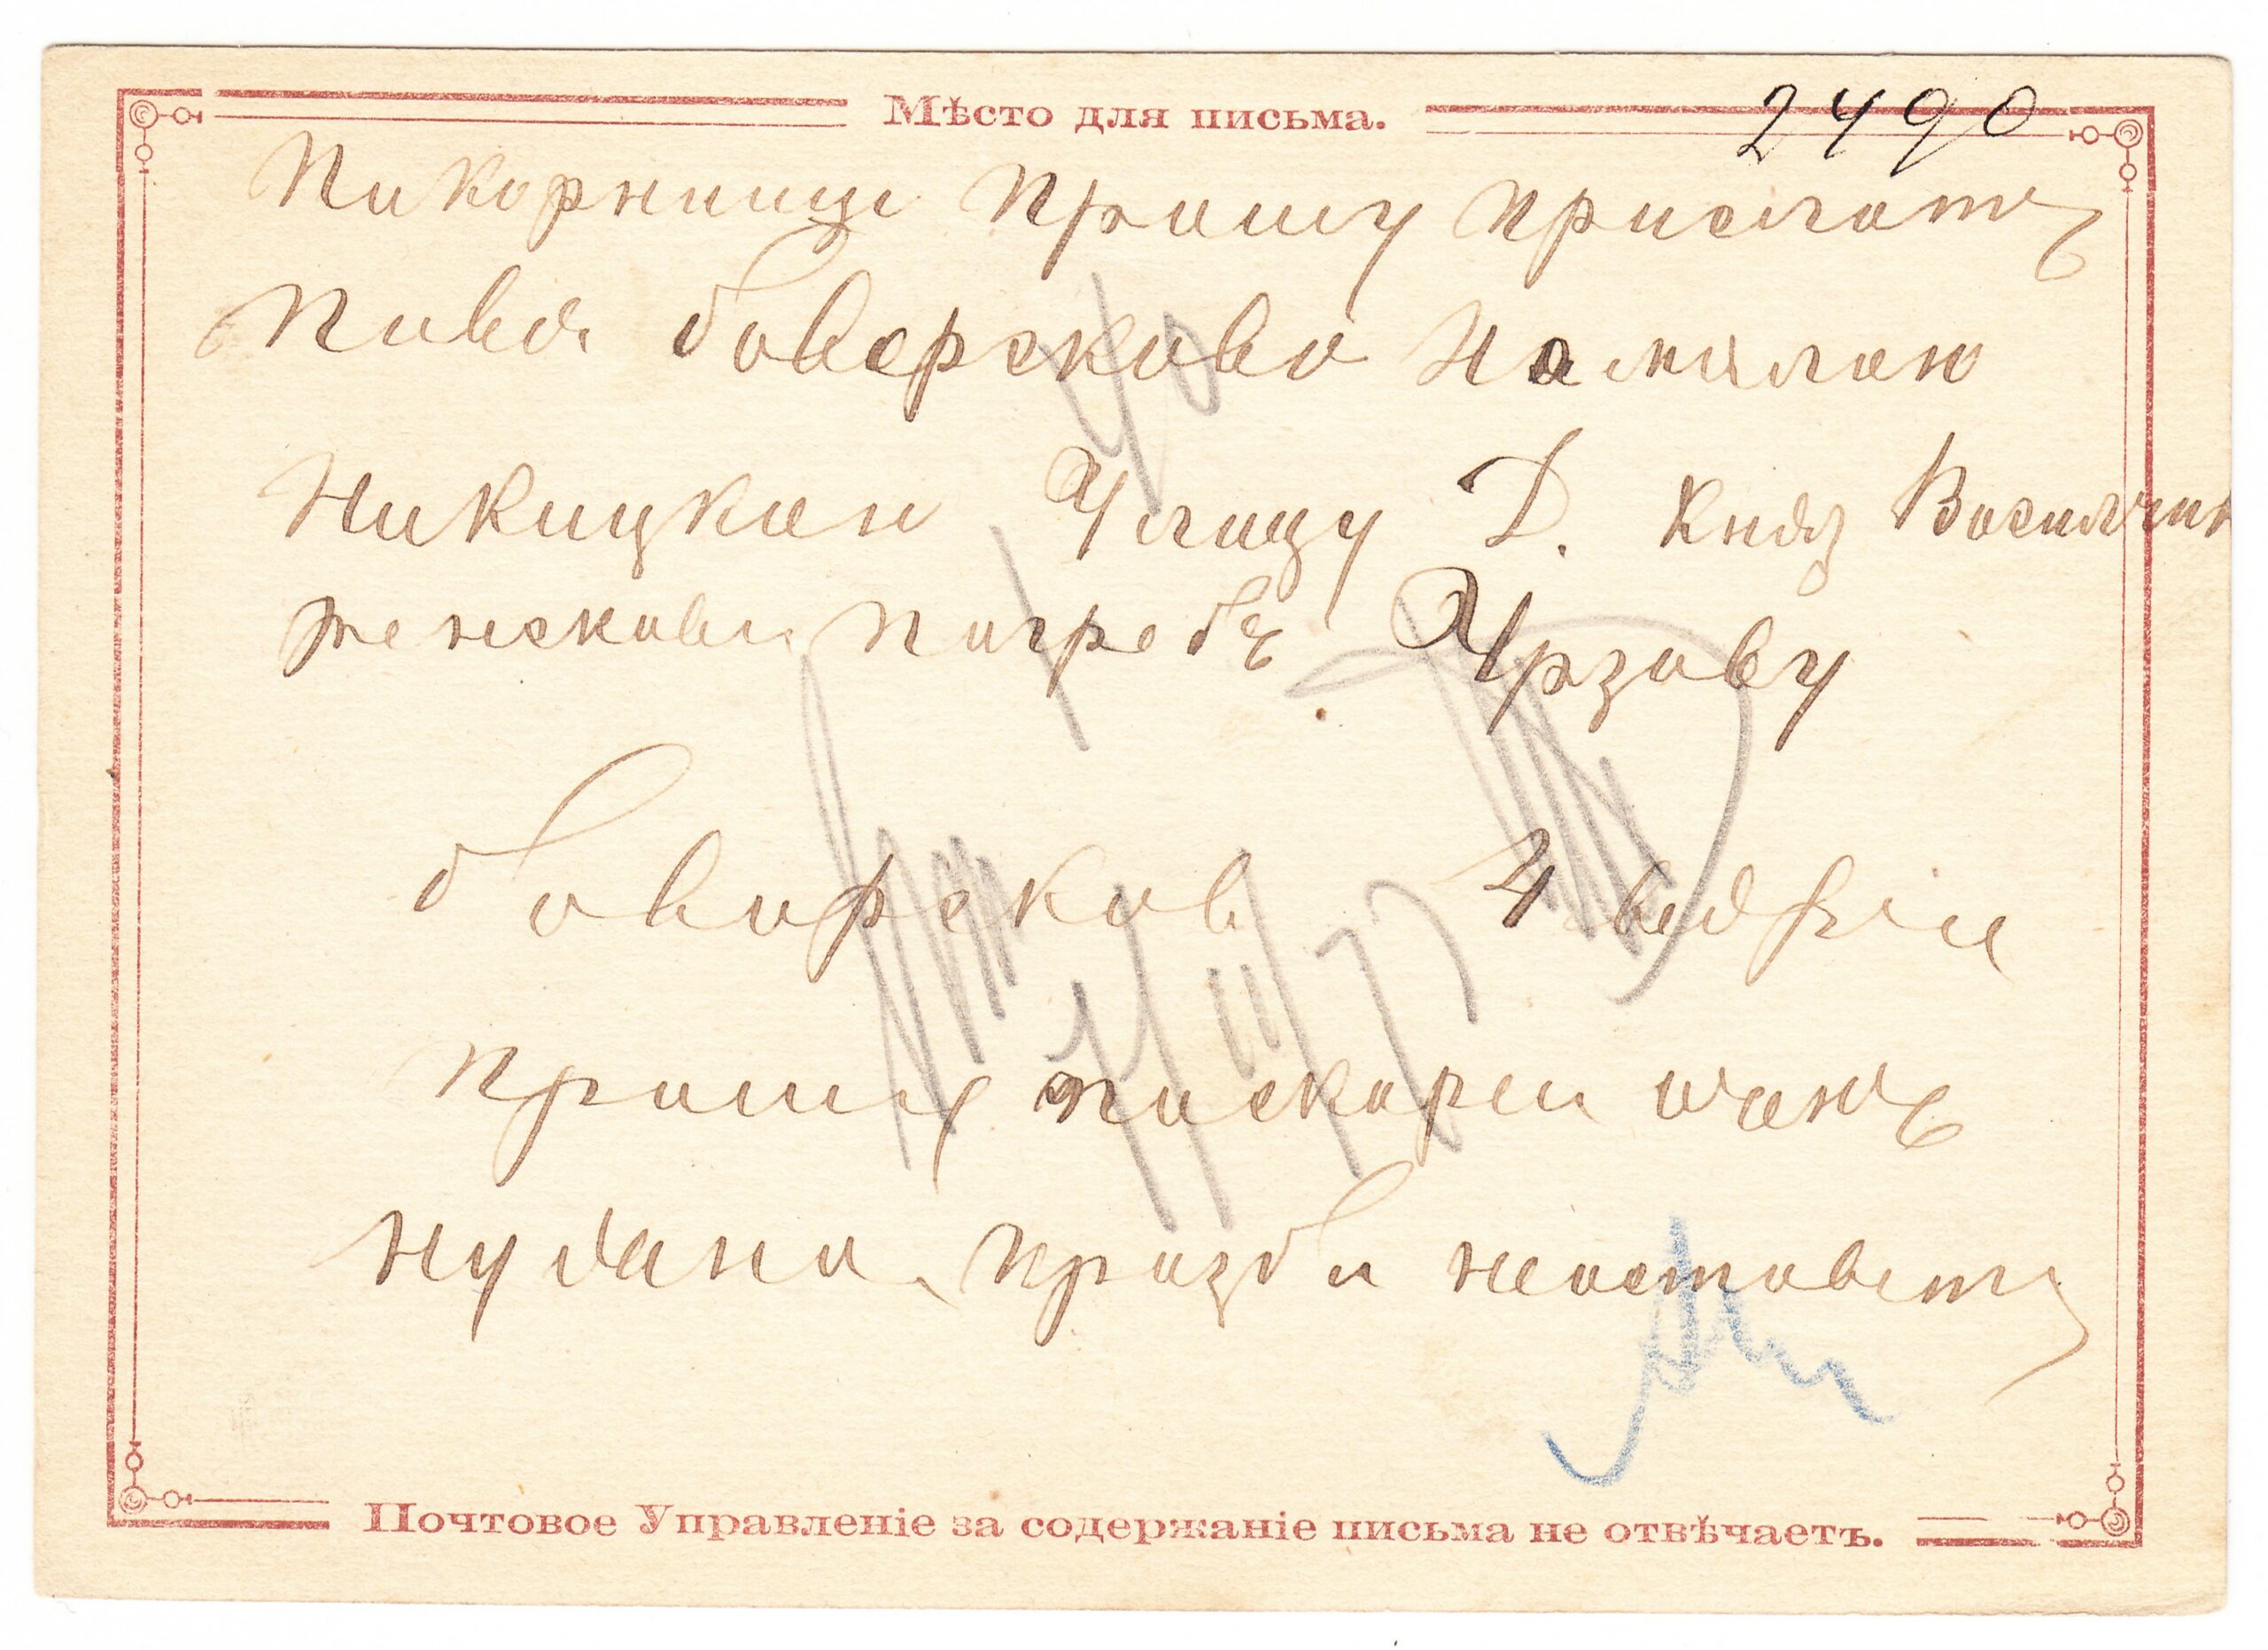 Мѣсто для письма.
2490
Пакорнище Прошу прислать
Пива боварскова На малою
Никицкаю Улицу Д. Княз Василчик
Женскова Погребъ Урзову
боварскова 4 ведра
прошу поскареи очень
нужано прозба неоставить
Почтовое Управленіе за содержаніе письма не отвѣчаетъ.